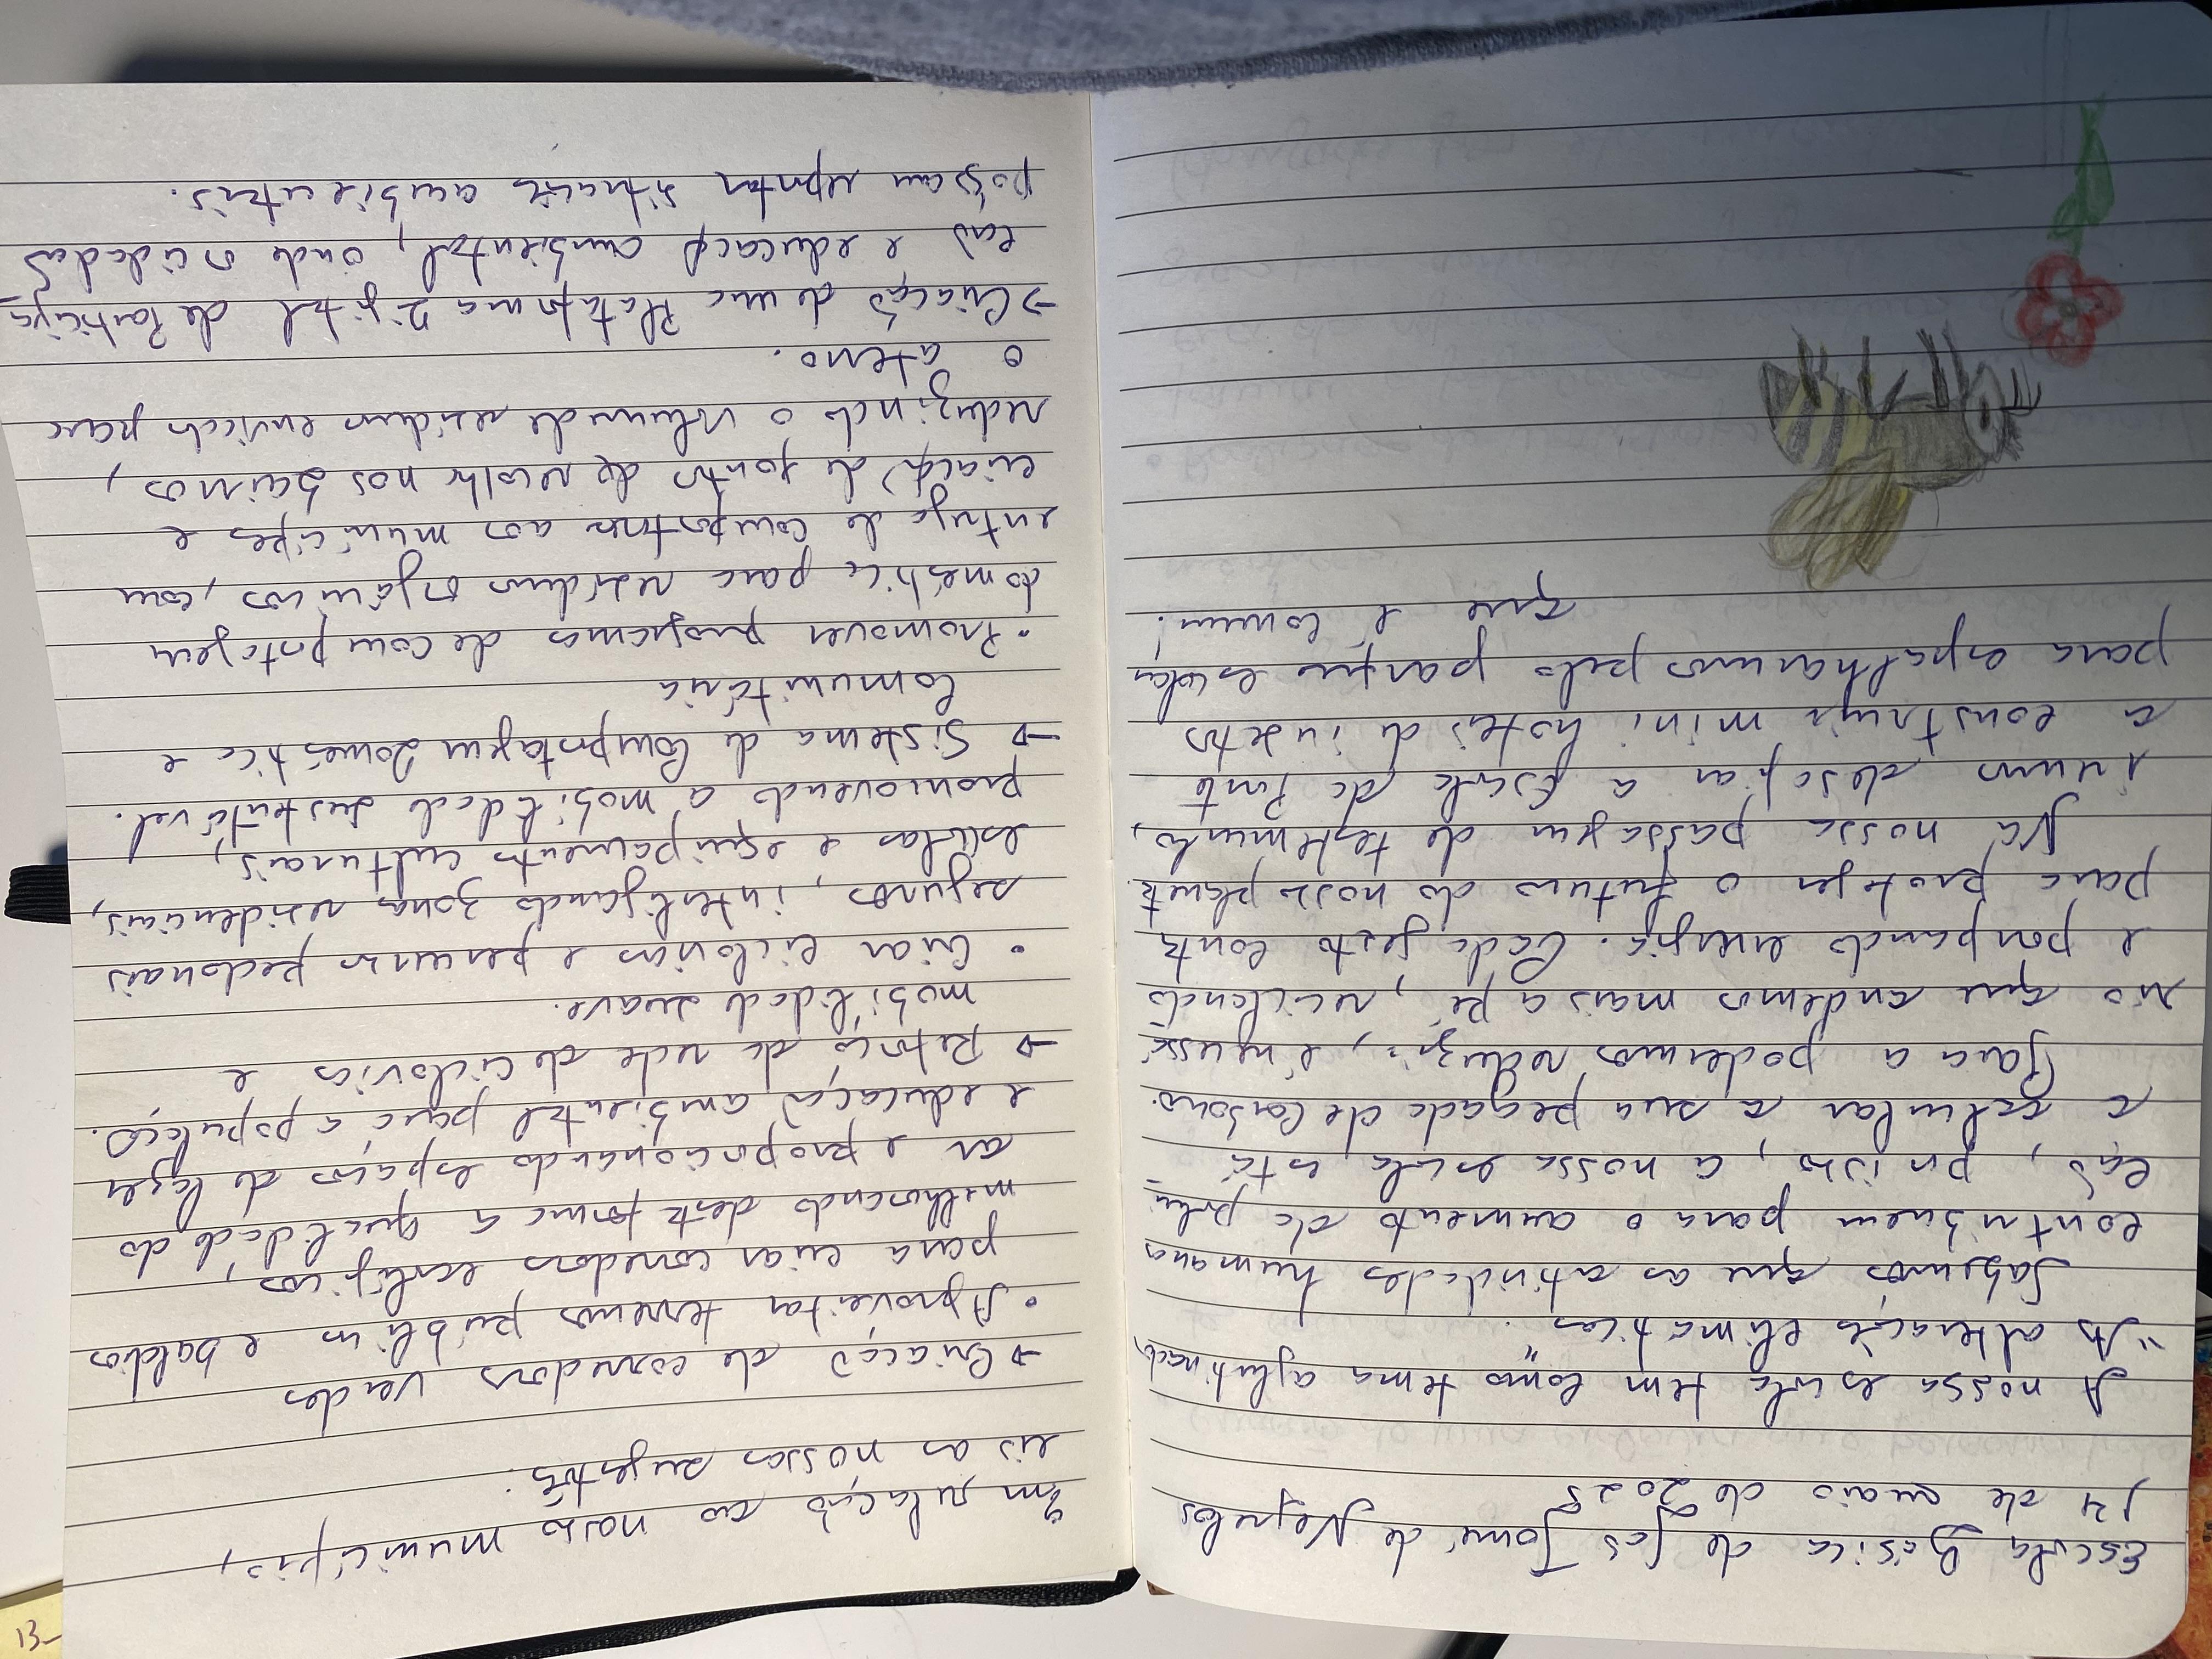 Escola Básica de São Tomé de Negrelos
14 de maio de 2025
A nossa escola tem como tema aglutinador,
"As alterações climáticas".
Sabemos que as atividades humanas
contribuem para o aumento da polui-
ção, por isso, a nossa escola está
a calcular a sua pegada de carbono.
Para a podermos reduzir, é necessá-
rio que andemos mais a pé, reciclando
e poupando energia. Cada gesto conta
para proteger o futuro do nosso planeta.
Na nossa passagem de testemunho,
vimos desafiar a Escola da Ponte
a construir mini hotéis de insetos
para espalharmos pelo parque escolar
que é comum!
Em relação ao nosso município,
eis as nossas sugestões:
→ Criação de corredores verdes
• Aproveitar terrenos públicos e baldios
para criar corredores ecológicos,
melhorando desta forma a qualidade do
ar e proporcionando espaços de lazer
e educação ambiental para a população.
→ Reforço da rede de ciclovias e
mobilidade suave.
• Criar ciclovias e percursos pedonais
seguros, interligando zonas residenciais,
escolas e equipamentos culturais,
promovendo a mobilidade sustentável.
→ Sistema de Compostagem Doméstica e
Comunitária
• Promover programas de compostagem
doméstica para resíduos orgânicos, com
entrega de compostores aos munícipes e
criação de pontos de recolha nos bairros,
reduzindo o volume de resíduos enviados para
o aterro.
→ Criação de uma Plataforma Digital de Participa-
ção e educação ambiental, onde os cidadãos
possam reportar situações ambientais.
13-